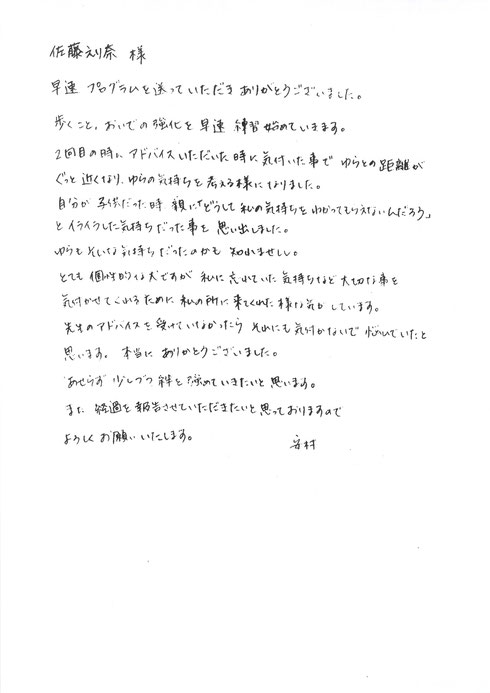 佐藤えり奈 様
早速 プログラムを送っていただき ありがとうございました。
歩くこと、おいでの強化を 早速 練習始めています。
2回目の時に アドバイスいただいた時に 気付いた事で ゆらとの距離が
ぐっと近くなり、ゆらの気持ちを 考える様になりました。
自分が 子供だった時 親に「どうして私の気持ちを わかってもらえないんだろう」
と イライラした気持ちだった事を 思い出しました。
ゆらも そんな気持ちだったのかも 知れません。
とても 個性的な犬ですが 私に 忘れていた 気持ちなど 大切な事を
気付かせてくれるために 私の所に 来てくれた 様な気が しています。
先生のアドバイスを 受けていなかったら それにも 気付かないで 悩んでいたと
思います。 本当に ありがとうございました。
あせらず 少しづつ 絆を 強めていきたいと思います。
また 経過を 報告させていただきたいと思っておりますので
よろしく お願いいたします。